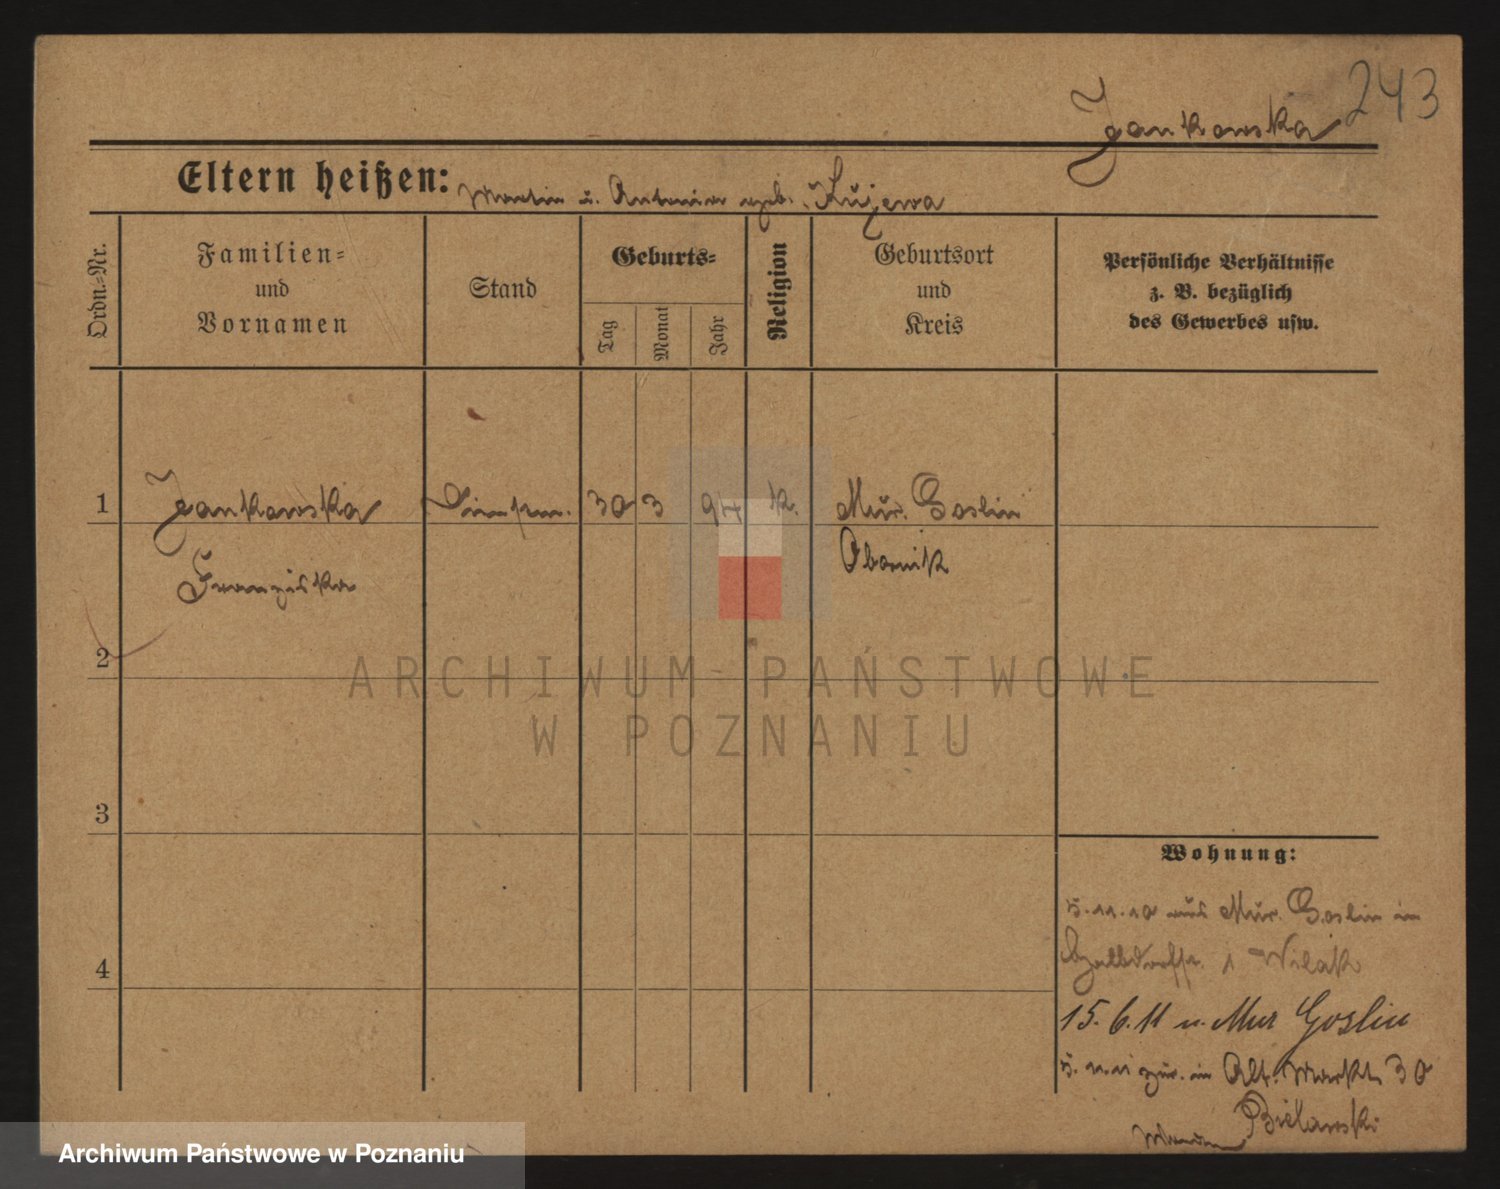 243
Jankowska
Eltern heißen: Martin u. Antonina geb. Kujewa
Ordn.-Nr.
Familien-
und
Vornamen
Stand
Geburts-
Tag
Monat
Jahr
Religion
Geburtsort
und
Kreis
Persönliche Verhältnisse
z. B. bezüglich
des Gewerbes usw.
1 Jankowska 30 3 94 k. Mur. Goslin
Franziska Obornik
2
3
4
Wohnung:
5.11.10 aus Mur. Goslin in
1
15.6.11 n. Mur Goslin
5. 11.11 zur. in Alt. Markt 30
Bielawski
ARCHIWUM PAŃSTWOWE
W POZNANIU
Archiwum Państwowe w Poznaniu